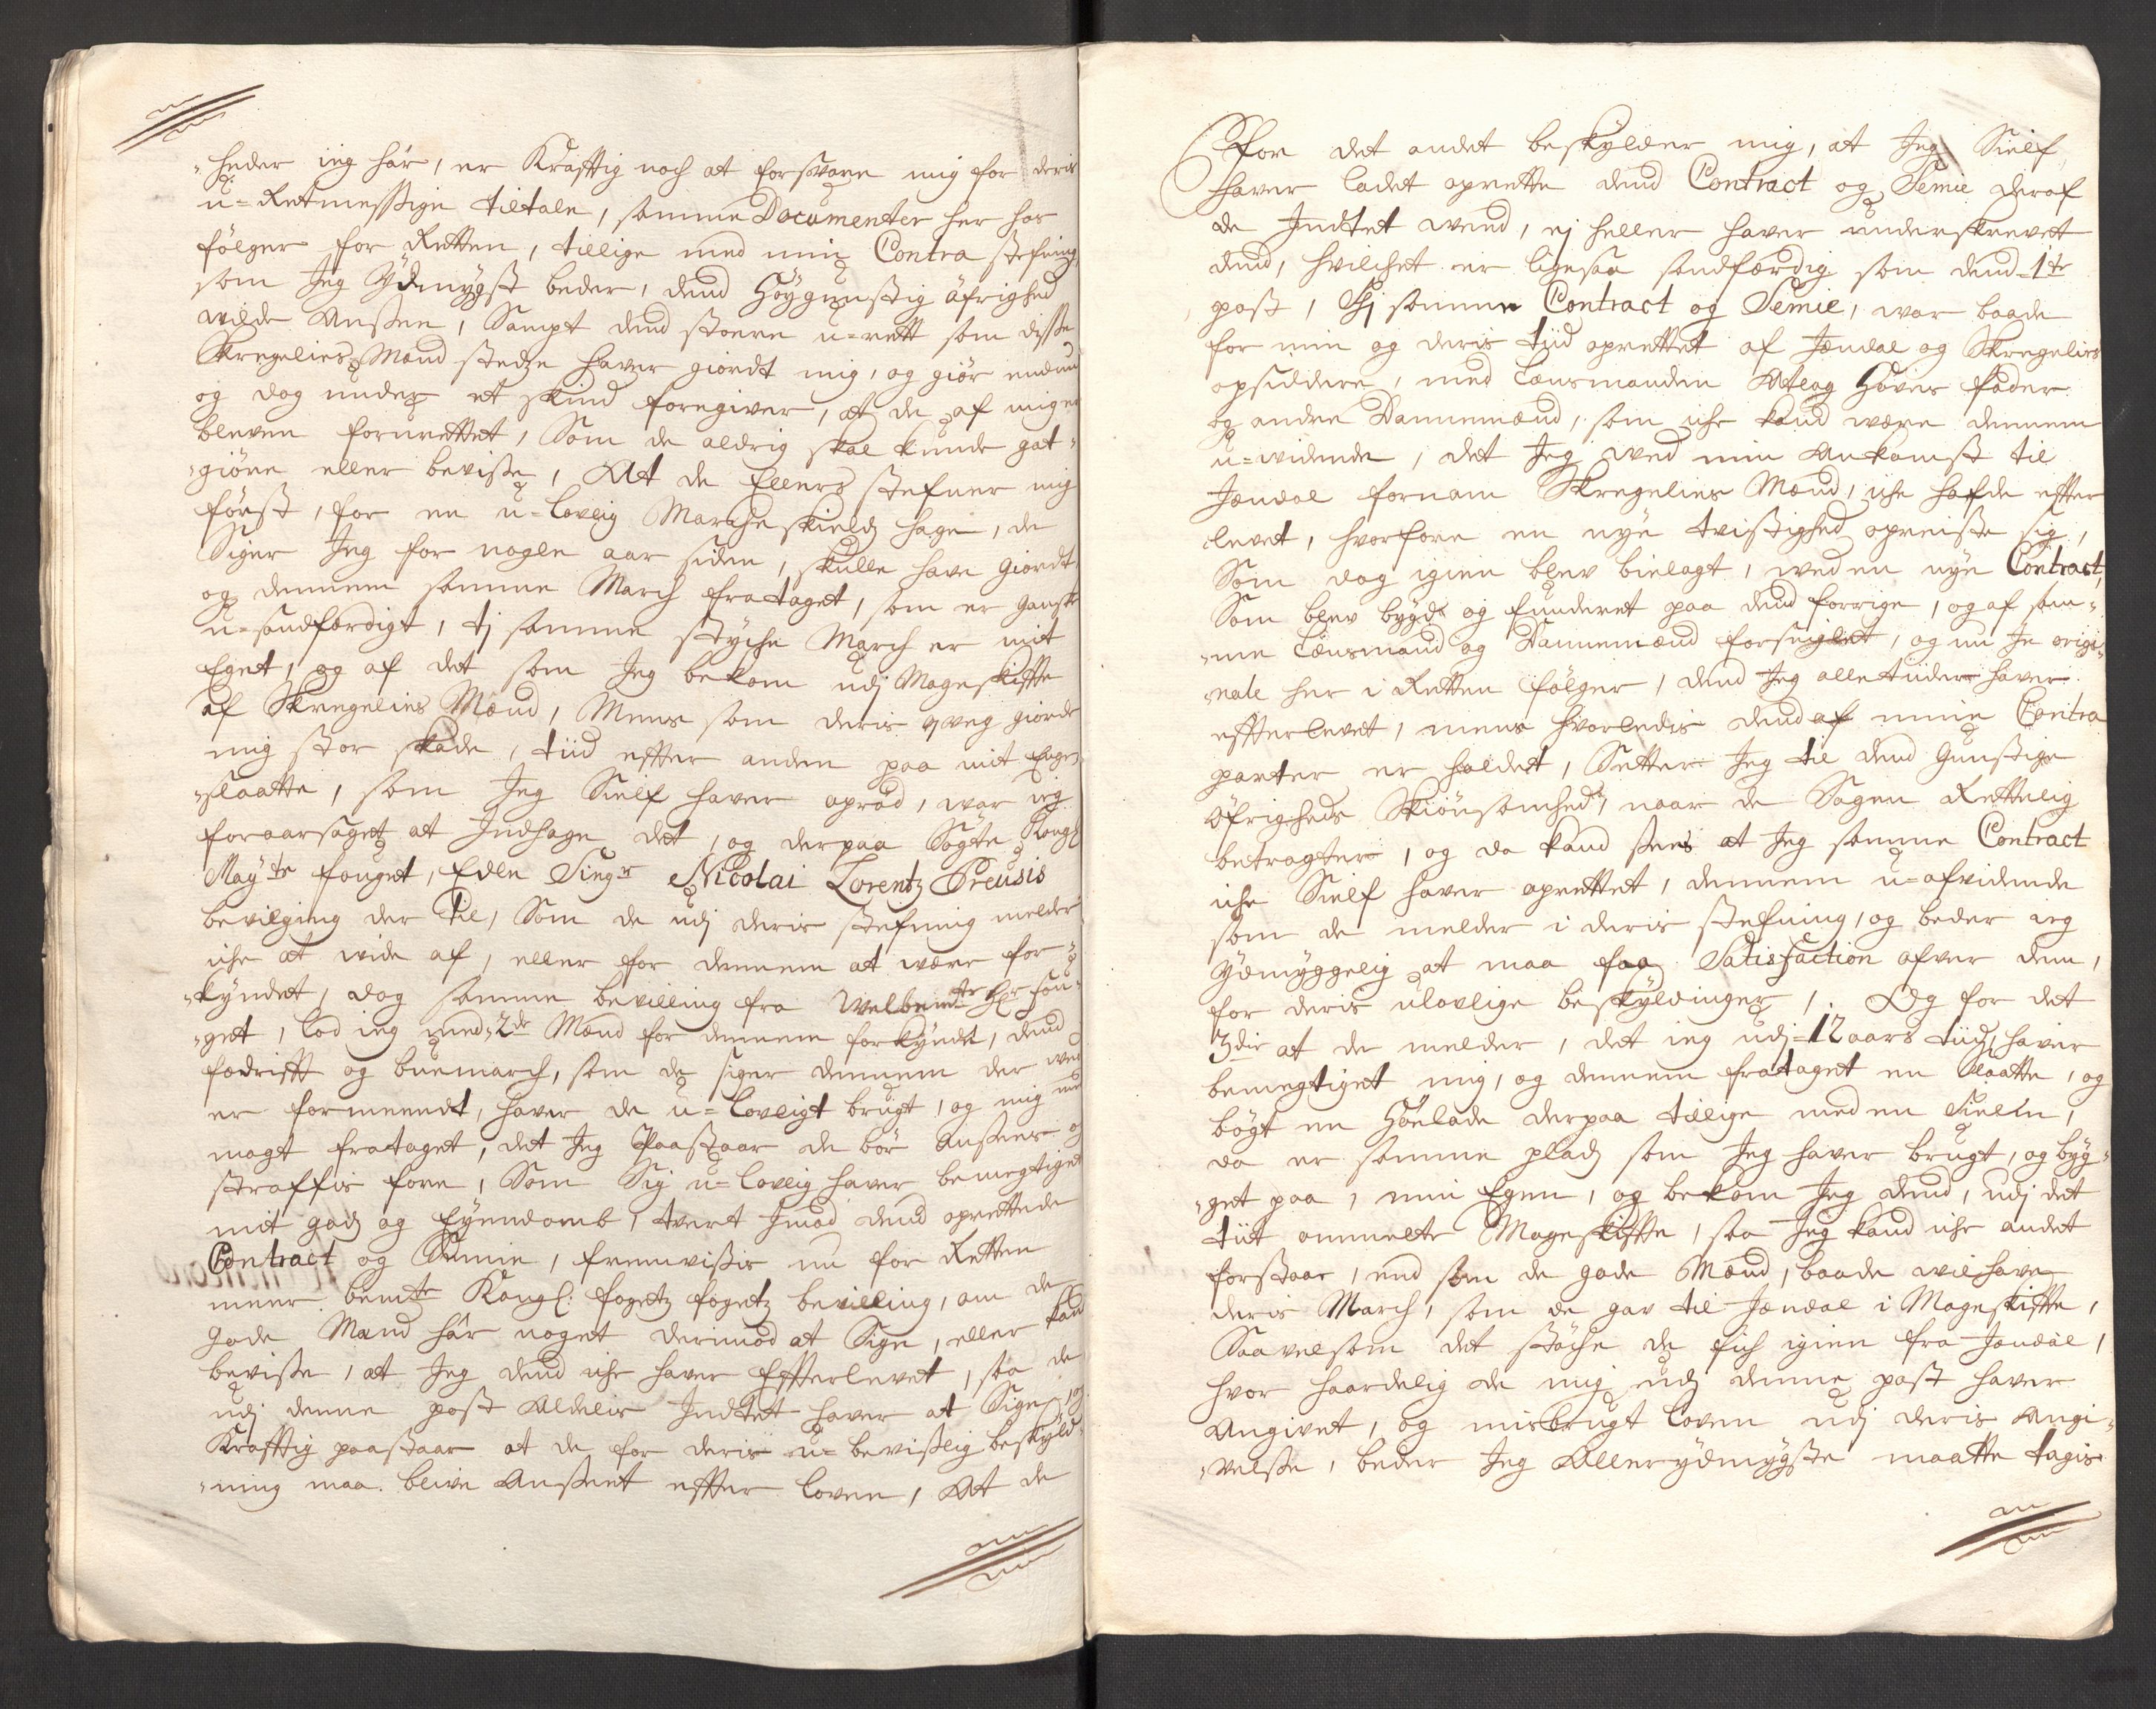 "heder ieg hår, er Krafftig noch at forsvare mig for deris
u=Retmessßige tiltale, samme Documenter her hos
fölger for Retten, tillige med min Contra stefning,
som Jeg Ydmygst beder, dend Höygunstig öfrighed
wilde Ansee, Sampt dend stoere u=rett som disse
Skregelies Mænd stedze haver giordt mig, og giör endnu
og dog under et skind foregiver, at de af mig er
bleven forurettet, Som de aldrig skal kunde got¬
"giöre eller bevisse, At de Ellers stefner mig
först, for en u=Lovlig Marche skields hage, de
Siger Jeg for nogle aar siden, skulle have giordt
og dennem samme March frataget, som er ganske
u=sandfærdigt, tj samme styche March er mit
Eget, og af det som Jeg bekom udj Mageskiffte
af Skregelies Mænd, Mens som deris qveg giorde
mig stor skade, tiid effter anden paa mit Enge¬
"slaatte, som Jeg Sielf haver oprød, war ieg
foraarsaget at Indhage det, og derpaa Søgte Kongl
May:ts fouget, Edle Sing:r Nicolai Lorentz Preusis
bevilging der til, Som de udj deris stefning melder
iche at wide af, eller for dennem at være for¬
"kyndet, dog samme bevilling fra Welbem:te Hr: fou¬
"get, lod ieg med 2de Mænd for dennem forkyndt, dend
fædrifft og buemarch, som de siger dennem der ved
er formeendt, haver de u=Lovligt brugt, og mig med
magt frataget, det Jeg Paastaar de bör Ansees og
straffis fore, Som Sig u=Lovlig haver bemegtiget
mit gods og Eyendomb, tvert Imod dend oprettede
Contract og Semie, fremvisis nu for Retten
meer bem:te Kongl: fogetz fogetz bevilling, om de
gode Mænd hår noget derimod at Sige, eller kand
bevisse, at Jeg dend iche haver Effterlevet, saa de
udj denne post Aldelis Indtet haver at Sige, og
Krafftig paastaar at de for deris u=bevislig beskyld¬
"ning maa blive Anseet effter loven, At de
For det andet beskylder mig, at Jeg Sielf
haver ladet oprette dend Contract og Semie deraf
de Indtet weed, ej heller haver underskrevet
dend, hvilchet er ligesaa sandfærdig som dend 1te
post, Tj samme Contract og Semie, war baade
for min og deris tiid oprettet af Jondal og Skregelies
opsiddere, med Lensmanden Atlag Hovis fader
og andre Dannemænd, som iche kand være dennem
u=widende, det Jeg wed min Ankomst til
Jondal fornam Skregelies Mænd, iche hafde effter
levet, hvorfore en nye tvistighed opreiste sig,
Som dog igien blev bielagt, wed en nye Contract,
Som blev bygdt og funderet paa dend forrige, og af sam¬
"me Lensmand og Dannemænd forseiglet, og nu In origi¬
"nale her i Retten fölger, dend Jeg alle tiider haver
effterlevet, mens hvorledis dend af mine Contra
parter er holdet, Setter Jeg til dend Gunstige
öfrigheds Skiönsomhed, naar de Sagen Rettelig
betragter, og da kand sees at Jeg samme Contract
iche Sielf haver oprettet, dennem u=afvidende
som de melder i deris stefning, og beder ieg
ydmyggelig at maa faa Satisfaction ofver dem,
for deris ulovlige beskyldinger, Og for det
3die at de melder, det ieg udj 12 aars tiid, haver
bemegtiget mig, og dennem frataget en Slaatte, og
bögt en Höelade derpaa tillige med en Sieln,
da er samme plads som Jeg haver brugt, og byg¬
"get paa, min Egen, og bekom Jeg dend, udj det
tiit ommelte Mageskiffte, saa Jeg kand iche andet
forstaar, end som de gode Mænd, baade wil have
deris March, som de gav til Jondal i Mageskiffte,
Saavelsom det støche de fich igien fra Jondal,
hvor haardelig de mig udj denne post haver
Angivet, og misbrugt loven udj deris Angi¬
"velse, beder Jeg Allerydmygste maatte tagis